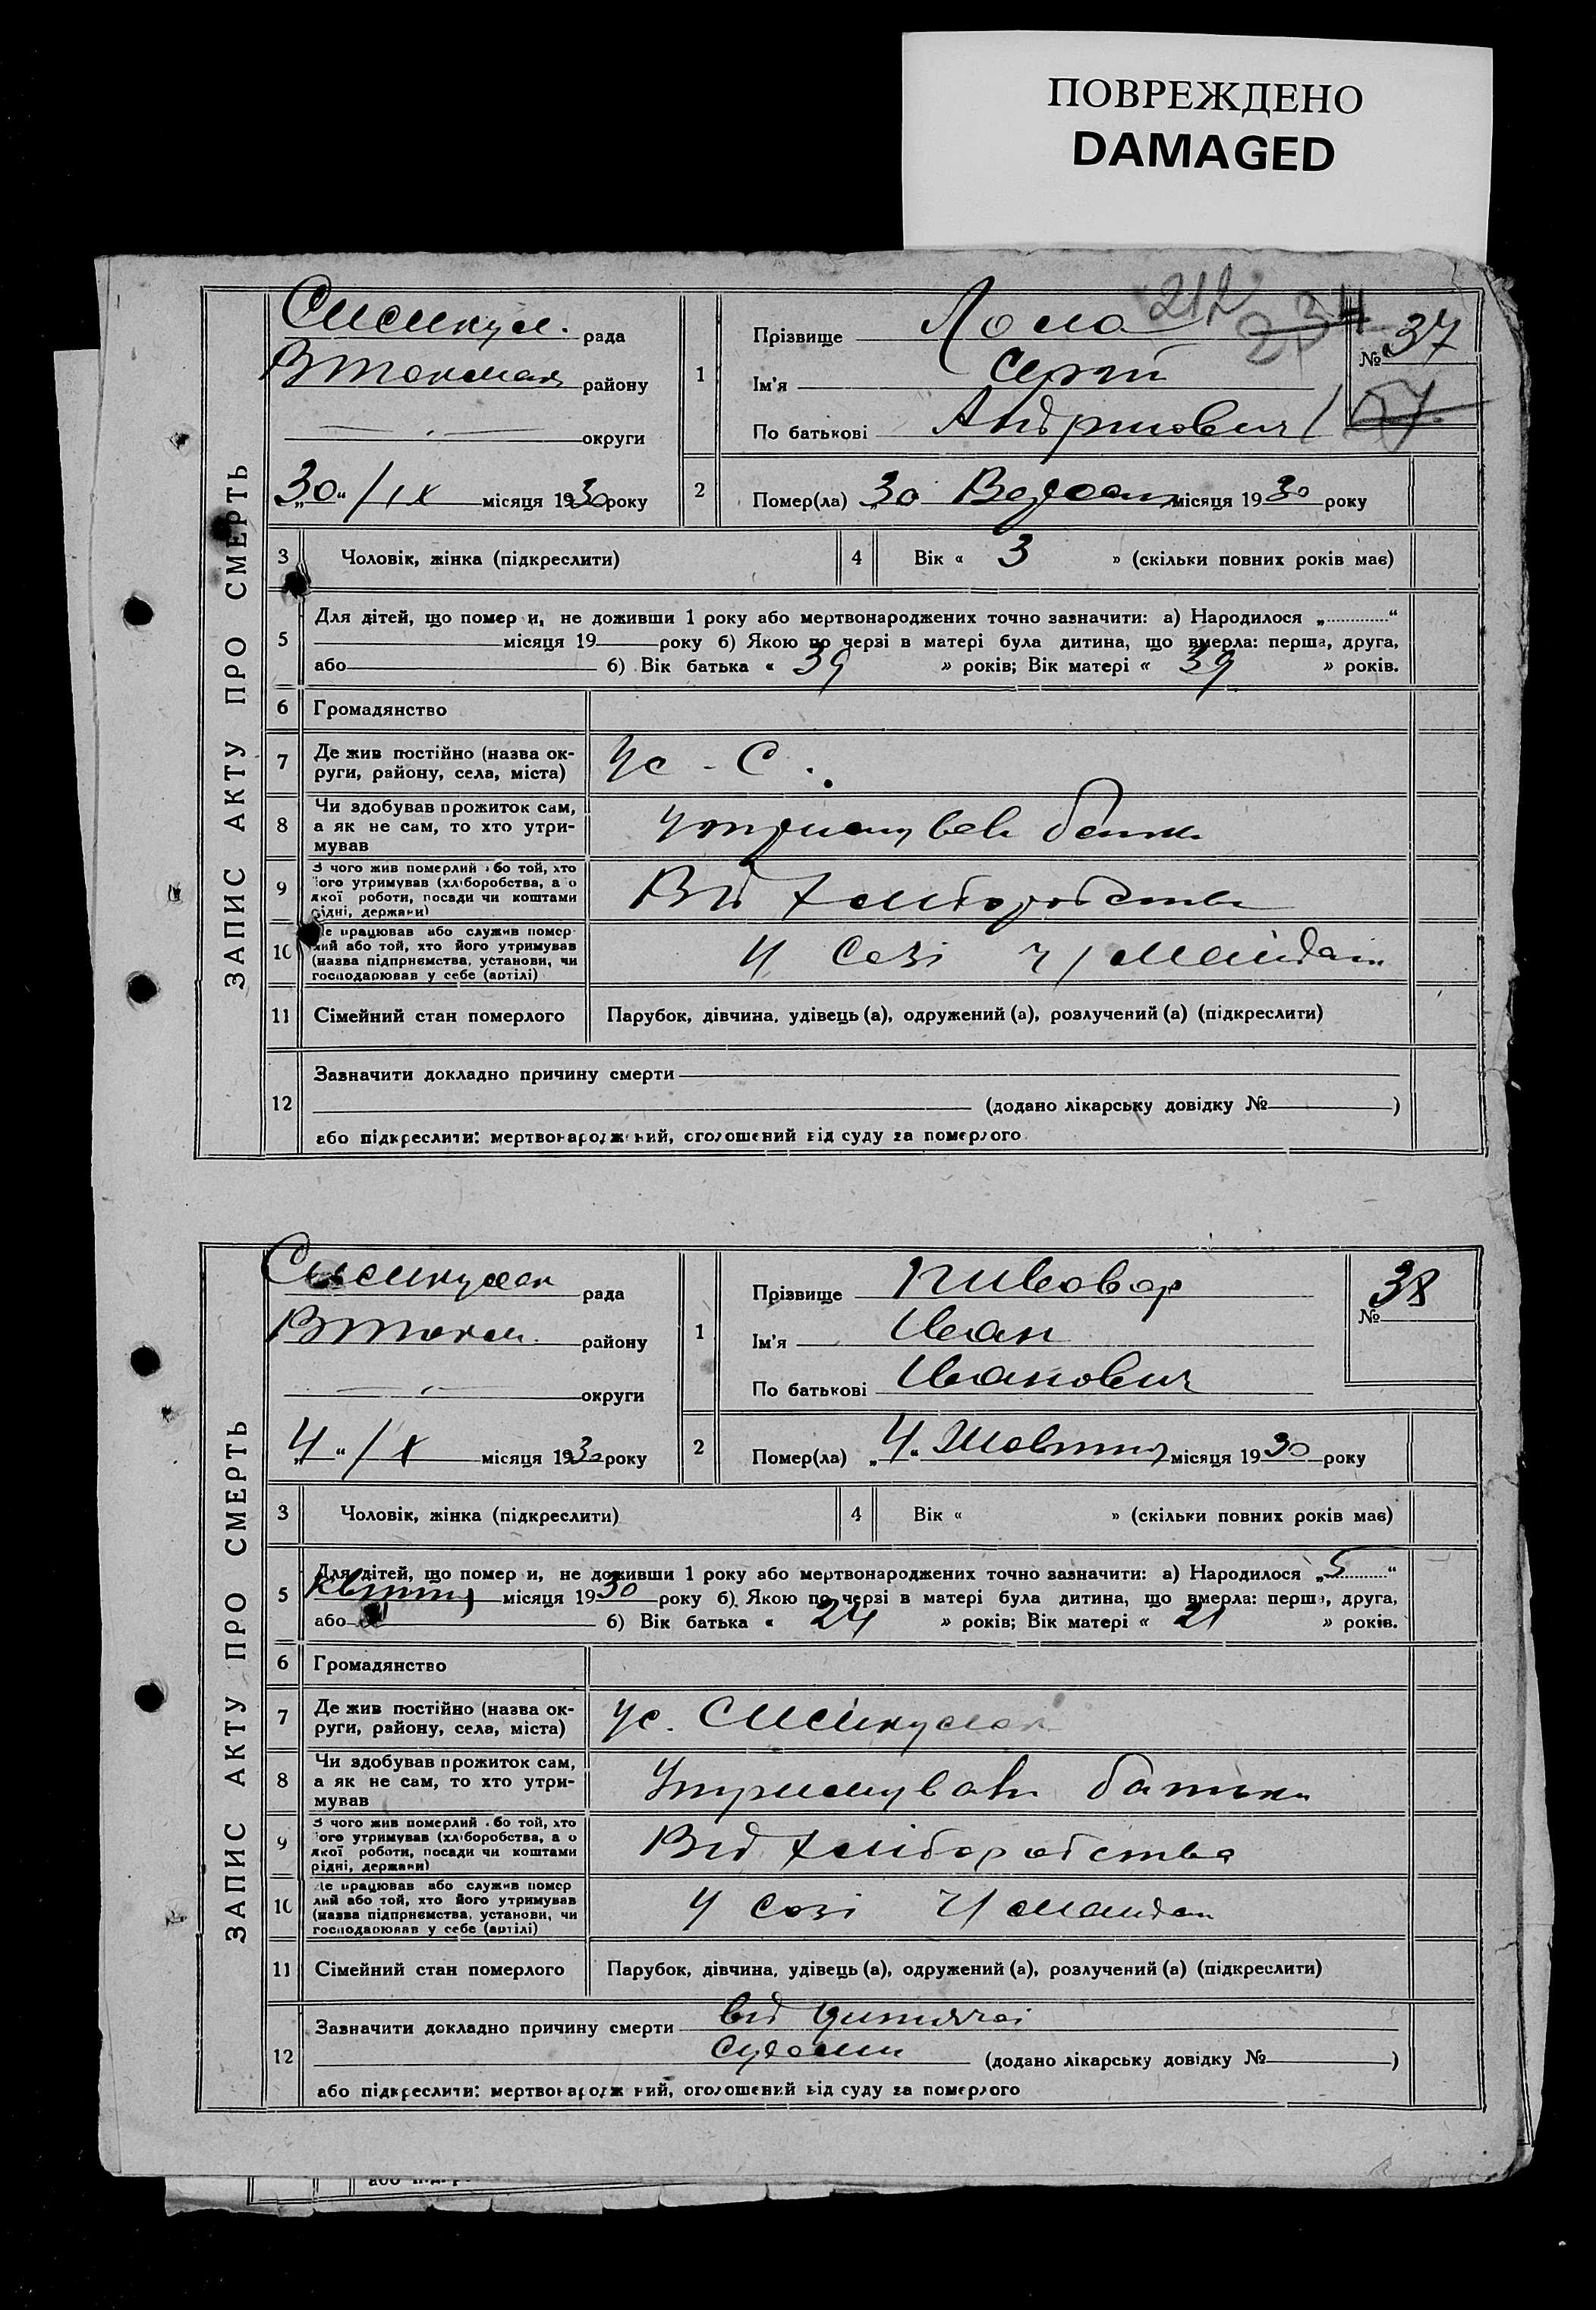 ПОВРЕЖДЕНО
DAMAGED
212
234
ЗАПИС АКТУ ПРО СМЕРТЬ
рада
В Токмак району
округи
„30“ / IX місяця 1930 року
1
Прізвище Лола
Ім’я Сергій
По батькові Андриович
№ 37
2 Помер(ла) „30 Вересня місяця 1930 року
3 Чоловік, жінка (підкреслити)
4 Вік « 3 » (скільки повних років має)
5 Для дітей, що помер и, не доживши 1 року або мертвонароджених точно зазначити: а) Народилося „ “
місяця 19 року б) Якою по черзі в матері була дитина, що вмерла: перша, друга,
або б) Вік батька « 39 » років; Вік матері « 39 » років.
6 Громадянство
7 Де жив постійно (назва ок-
руги, району, села, міста) Ус. С.
8 Чи здобував прожиток сам,
а як не сам, то хто утри-
мував
Утримував батьк
9 З чого жив померлий або той, хто
його утримував (хліборобства, а о
якої роботи, посади чи коштами
рідні, держави)
Від хліборобства
10 Де працював або служив помер
лий або той, хто його утримував
(назва підприємства, установи, чи
господарював у себе (артілі)
У Созі Ч/Майдан
11 Сімейний стан померлого Парубок, дівчина, удівець (а), одружений (а), розлучений (а) (підкреслити)
12 Зазначити докладно причину смерти
(додано лікарську довідку № )
або підкреслити: мертвонароджений, оголошений від суду за померлого
ЗАПИС АКТУ ПРО СМЕРТЬ
рада
В Токм. району
округи
„4“ / X місяця 1930 року
1
Прізвище Пивовар
Ім’я Иван
По батькові Иванович
№ 38
2 Помер(ла) „4“ Жовтня місяця 1930 року
3 Чоловік, жінка (підкреслити)
4 Вік « » (скільки повних років має)
5 Для дітей, що помер и, не доживши 1 року або мертвонароджених точно зазначити: а) Народилося „5“
квітня місяця 1930 року б) Якою по черзі в матері була дитина, що вмерла: перша, друга,
або б) Вік батька « 24 » років; Вік матері « 21 » років.
6 Громадянство
7 Де жив постійно (назва ок-
руги, району, села, міста) Ус.
8 Чи здобував прожиток сам,
а як не сам, то хто утри-
мував
Утримував батьки
9 З чого жив померлий або той, хто
його утримував (хліборобства, а о
якої роботи, посади чи коштами
рідні, держави)
Від хліборобства
10 Де працював або служив помер
лий або той, хто його утримував
(назва підприємства, установи, чи
господарював у себе (артілі)
У Созі Ч/Майдан
11 Сімейний стан померлого Парубок, дівчина, удівець (а), одружений (а), розлучений (а) (підкреслити)
12 Зазначити докладно причину смерти від дитячої
судоми (додано лікарську довідку № )
або підкреслити: мертвонароджений, оголошений від суду за померлого